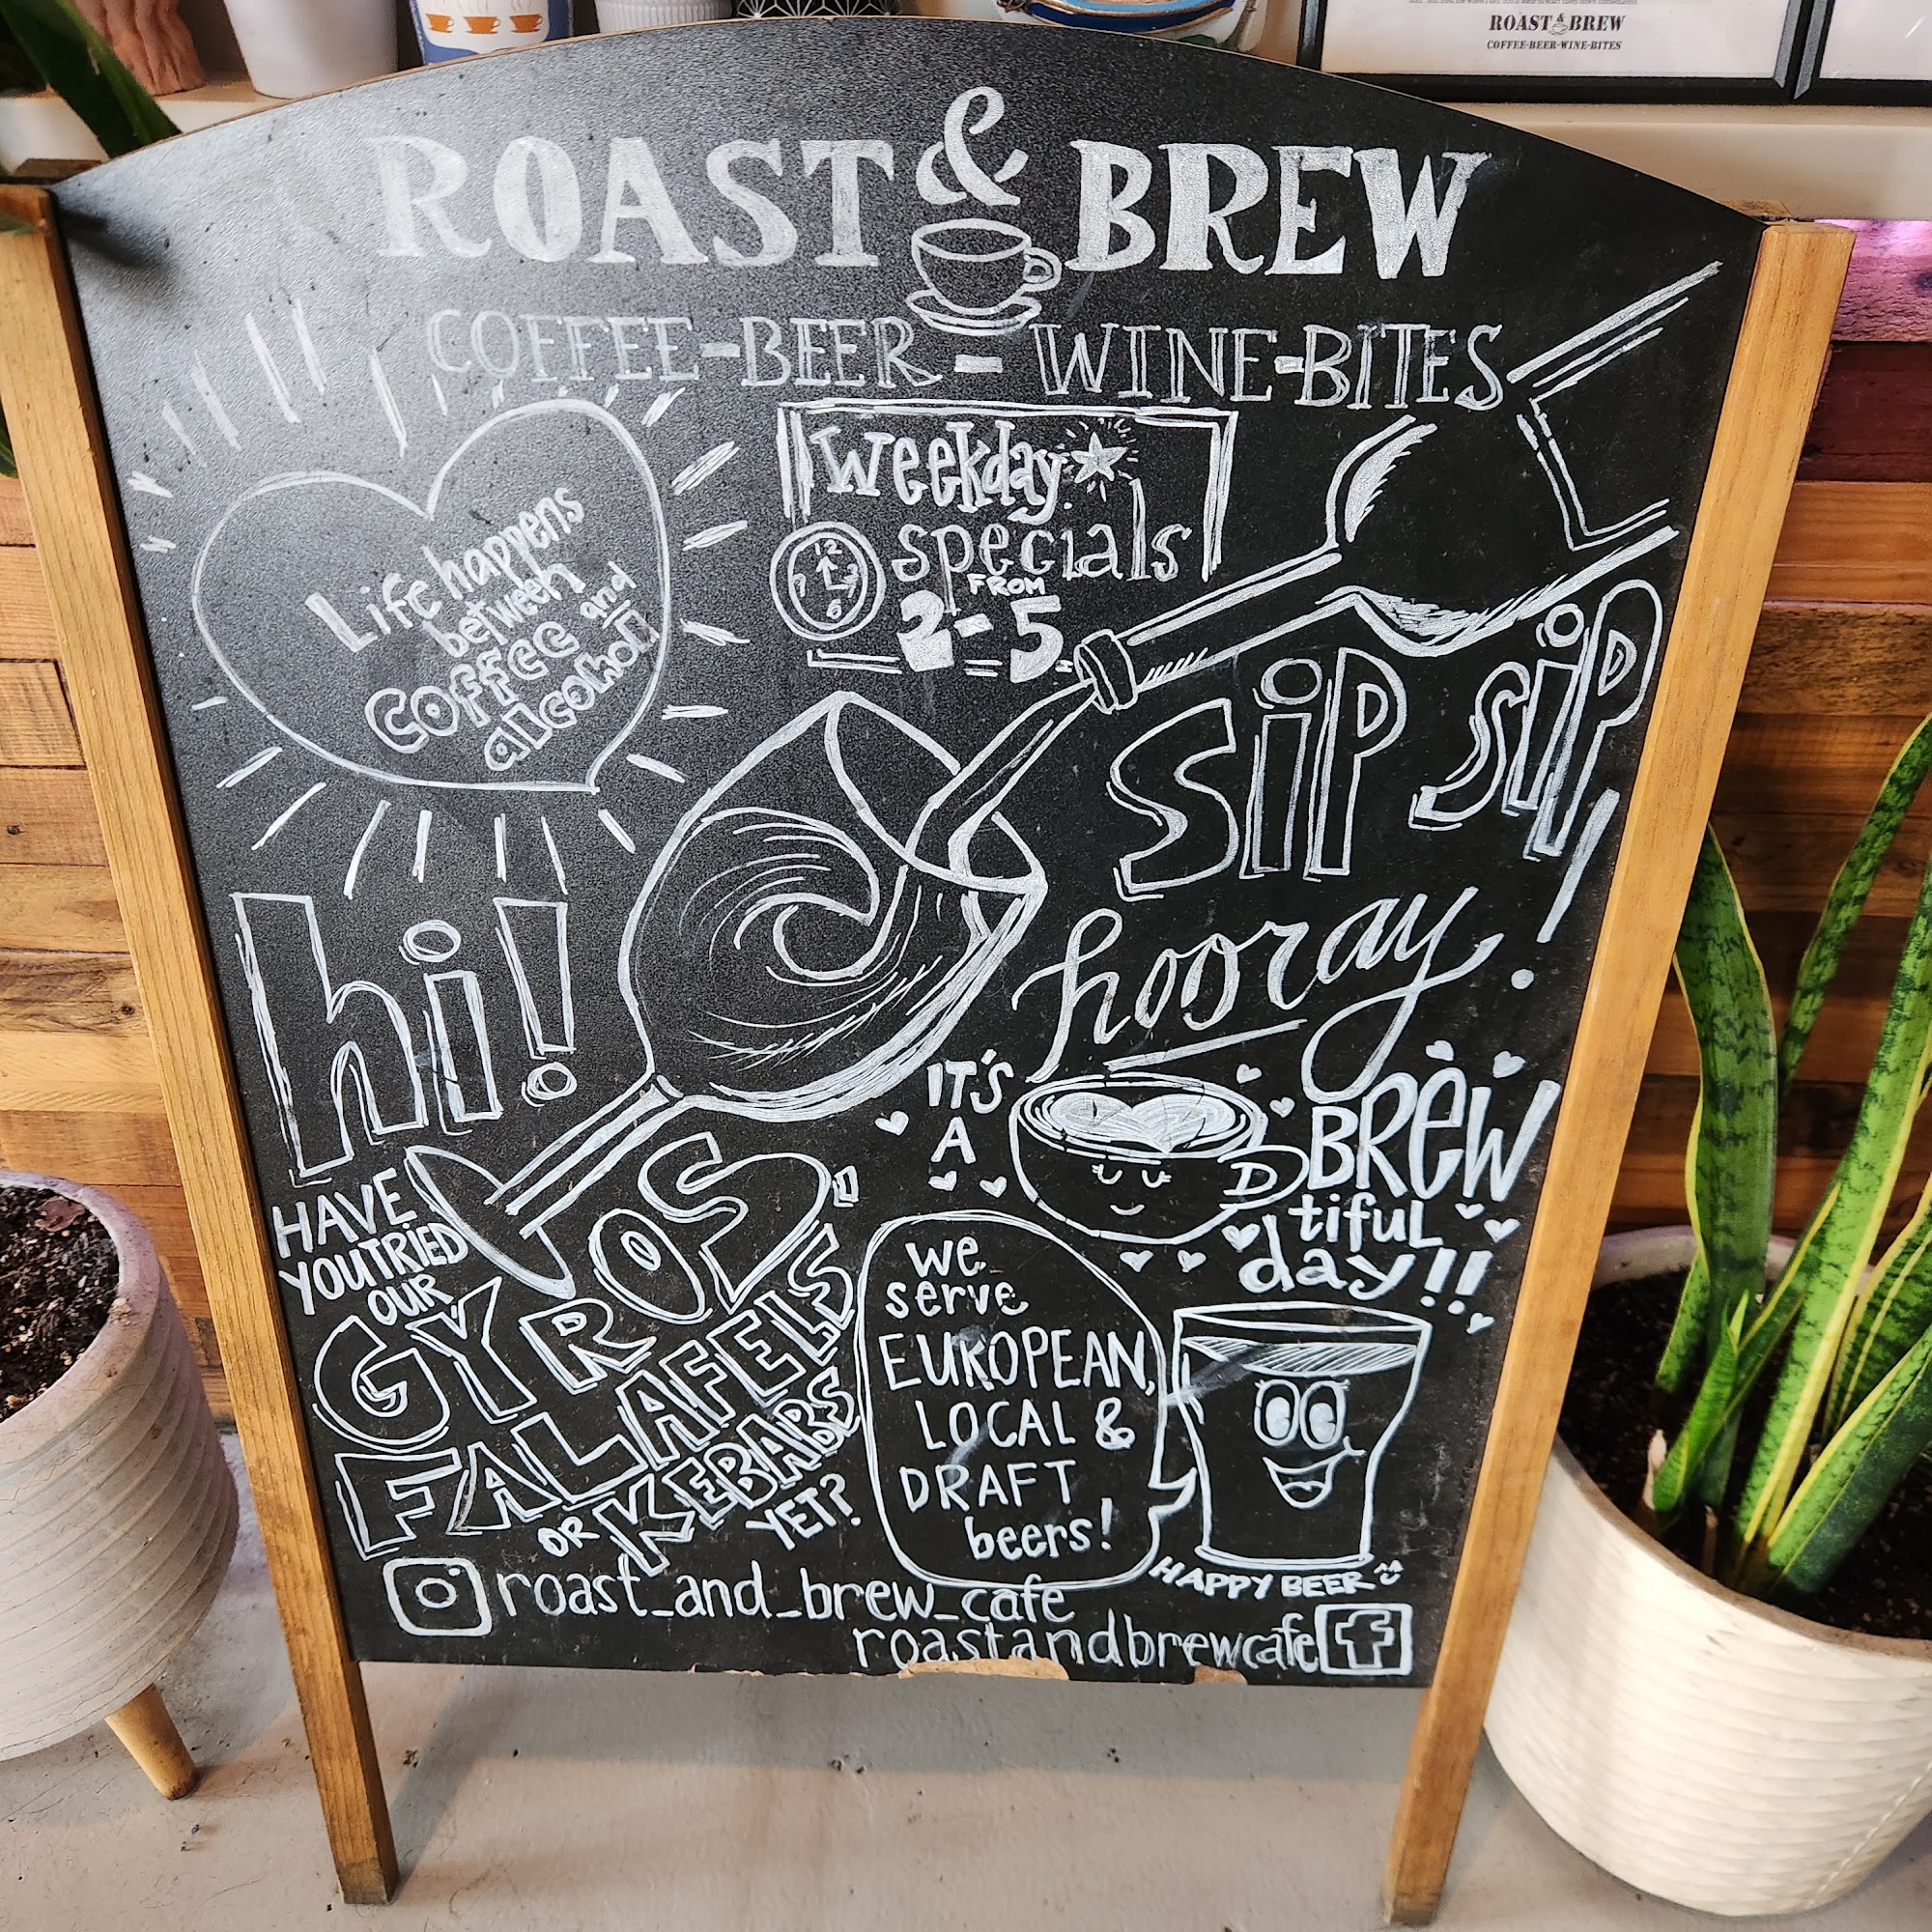 ROAST & BREW
COFFEE-BEER-WINE-BITES
ROAST & BREW
COFFEE-BEER-WINE-BITES
Life happens
between
COFFEE and
alcohol
weekday
specials
FROM
2-5
12
3
6
SIP SIP
hooray!
hi!
IT'S
A
BREW
tiful
day!!
HAVE
YOU TRIED
OUR
GYROS,
FALAFELS
OR KEBABS
YET?
we
serve
EUROPEAN,
LOCAL &
DRAFT
beers!
HAPPY BEER
roast_and_brew_cafe
roastandbrewcafe f